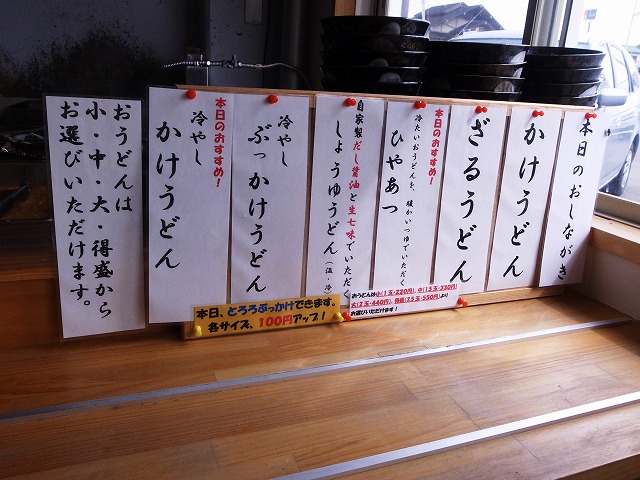 本日のおしながき
かけうどん
ざるうどん
本日のおすすめ!
冷たいおうどんを、暖かいつゆでいただく
ひやあつ
自家製だし醤油と生七味でいただく
しょうゆうどん(温・冷)
冷やし
ぶっかけうどん
本日のおすすめ!
冷やし
かけうどん
おうどんは
小・中・大・得盛から
お選びいただけます。
本日、とろろぶっかけできます。
各サイズ、100円アップ!
おうどんは小(1玉・220円)、中(1.5玉・330円)
大(2玉・440円)、得盛(2.5玉・550円)より
お選びいただけます!